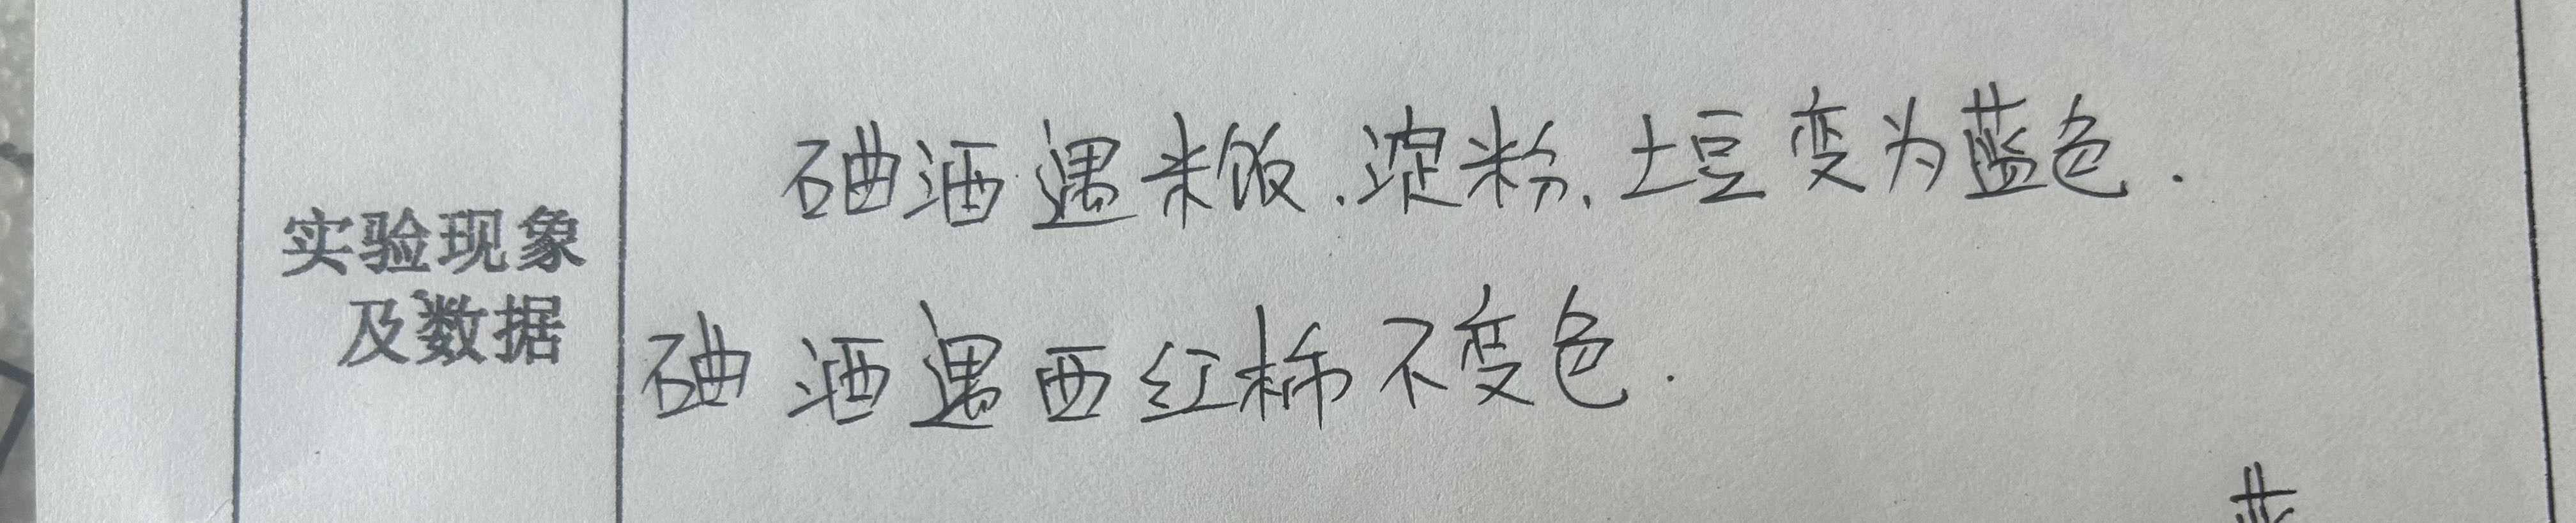 碘洒遇米饭.淀粉.土豆变为蓝色.
实验现象
及数据
碘洒遇西红柿不变色.